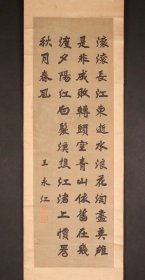 滾滾長江東逝水浪花淘盡英雄
是非成敗轉頭空青山依舊在幾
度夕陽紅白髮漁樵江渚上慣看
秋月春風
王永江